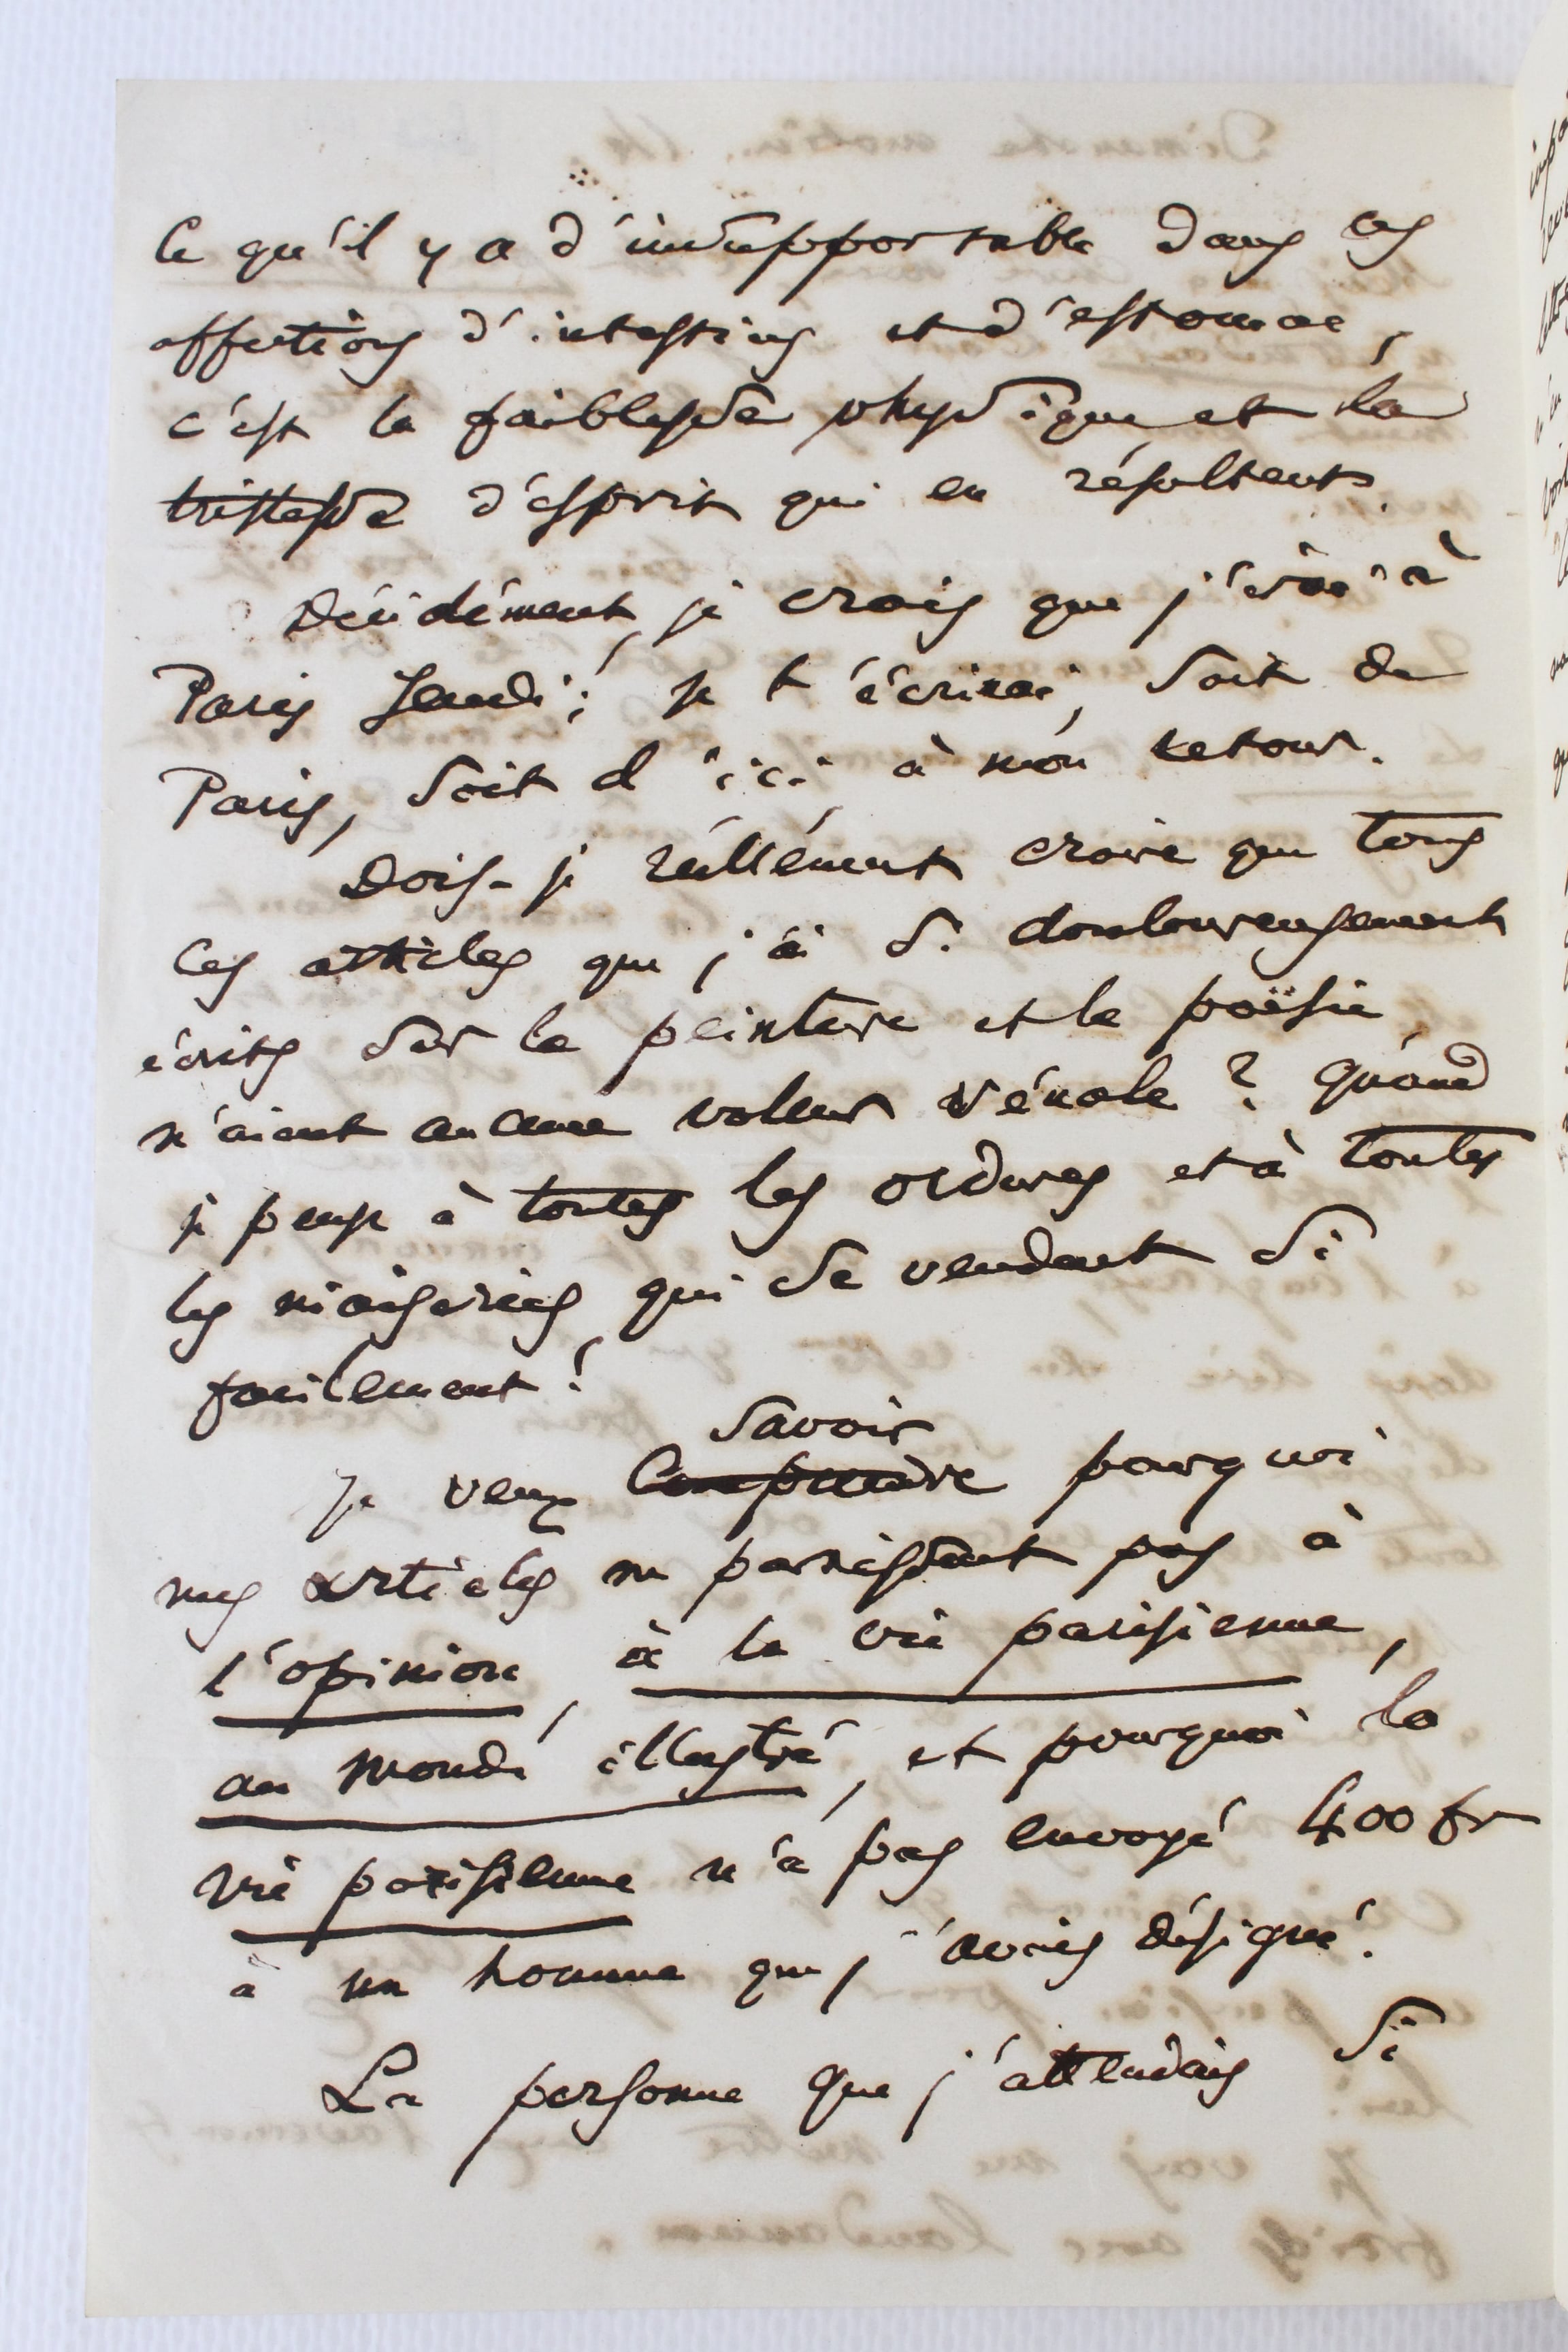 Ce qu'il y a d'insupportable dans ces
affections d'intestins et d'estomac,
c'est la faiblesse physique et la
tristesse d'esprit qui en résultent.
Décidément, je crois que j'irai à
Paris Jeudi; je t'écrirai, soit de
Paris, soit d'ici à mon retour.
Dois-je réellement croire que tous
ces articles que j'ai si douloureusement
écrits sur la peinture et la poësie
n'aient aucune valeur vénale? Quand
je pense à toutes les ordures et à toutes
les niaiseries qui se vendent si
facilement!
savoir
Je veux Comprendre pourquoi
mes articles ne paraissent pas à
l'opinion, à la vie parisienne,
au monde illustré, et pourquoi la
vie parisienne n'a pas envoyé 400 fr
à un homme que j'avais désigné.
La personne que j'attendais si